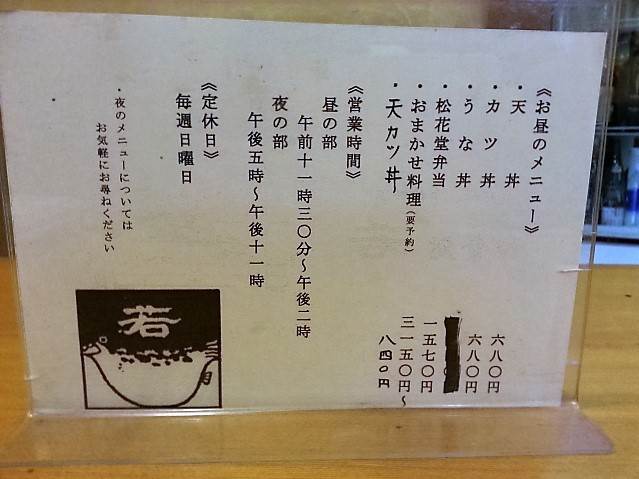 《お昼のメニュー》
・天 丼 六八〇円
・カ ツ 丼 六八〇円
・う な 丼 円
・松花堂弁当 一五七〇円
・おまかせ料理(要予約) 三一五〇円〜
・天カツ丼 八四〇円
《営業時間》
昼の部
午前十一時三〇分〜午後二時
夜の部
午後五時〜午後十一時
《定休日》
毎週日曜日
・夜のメニューについては
お気軽にお尋ねください
若